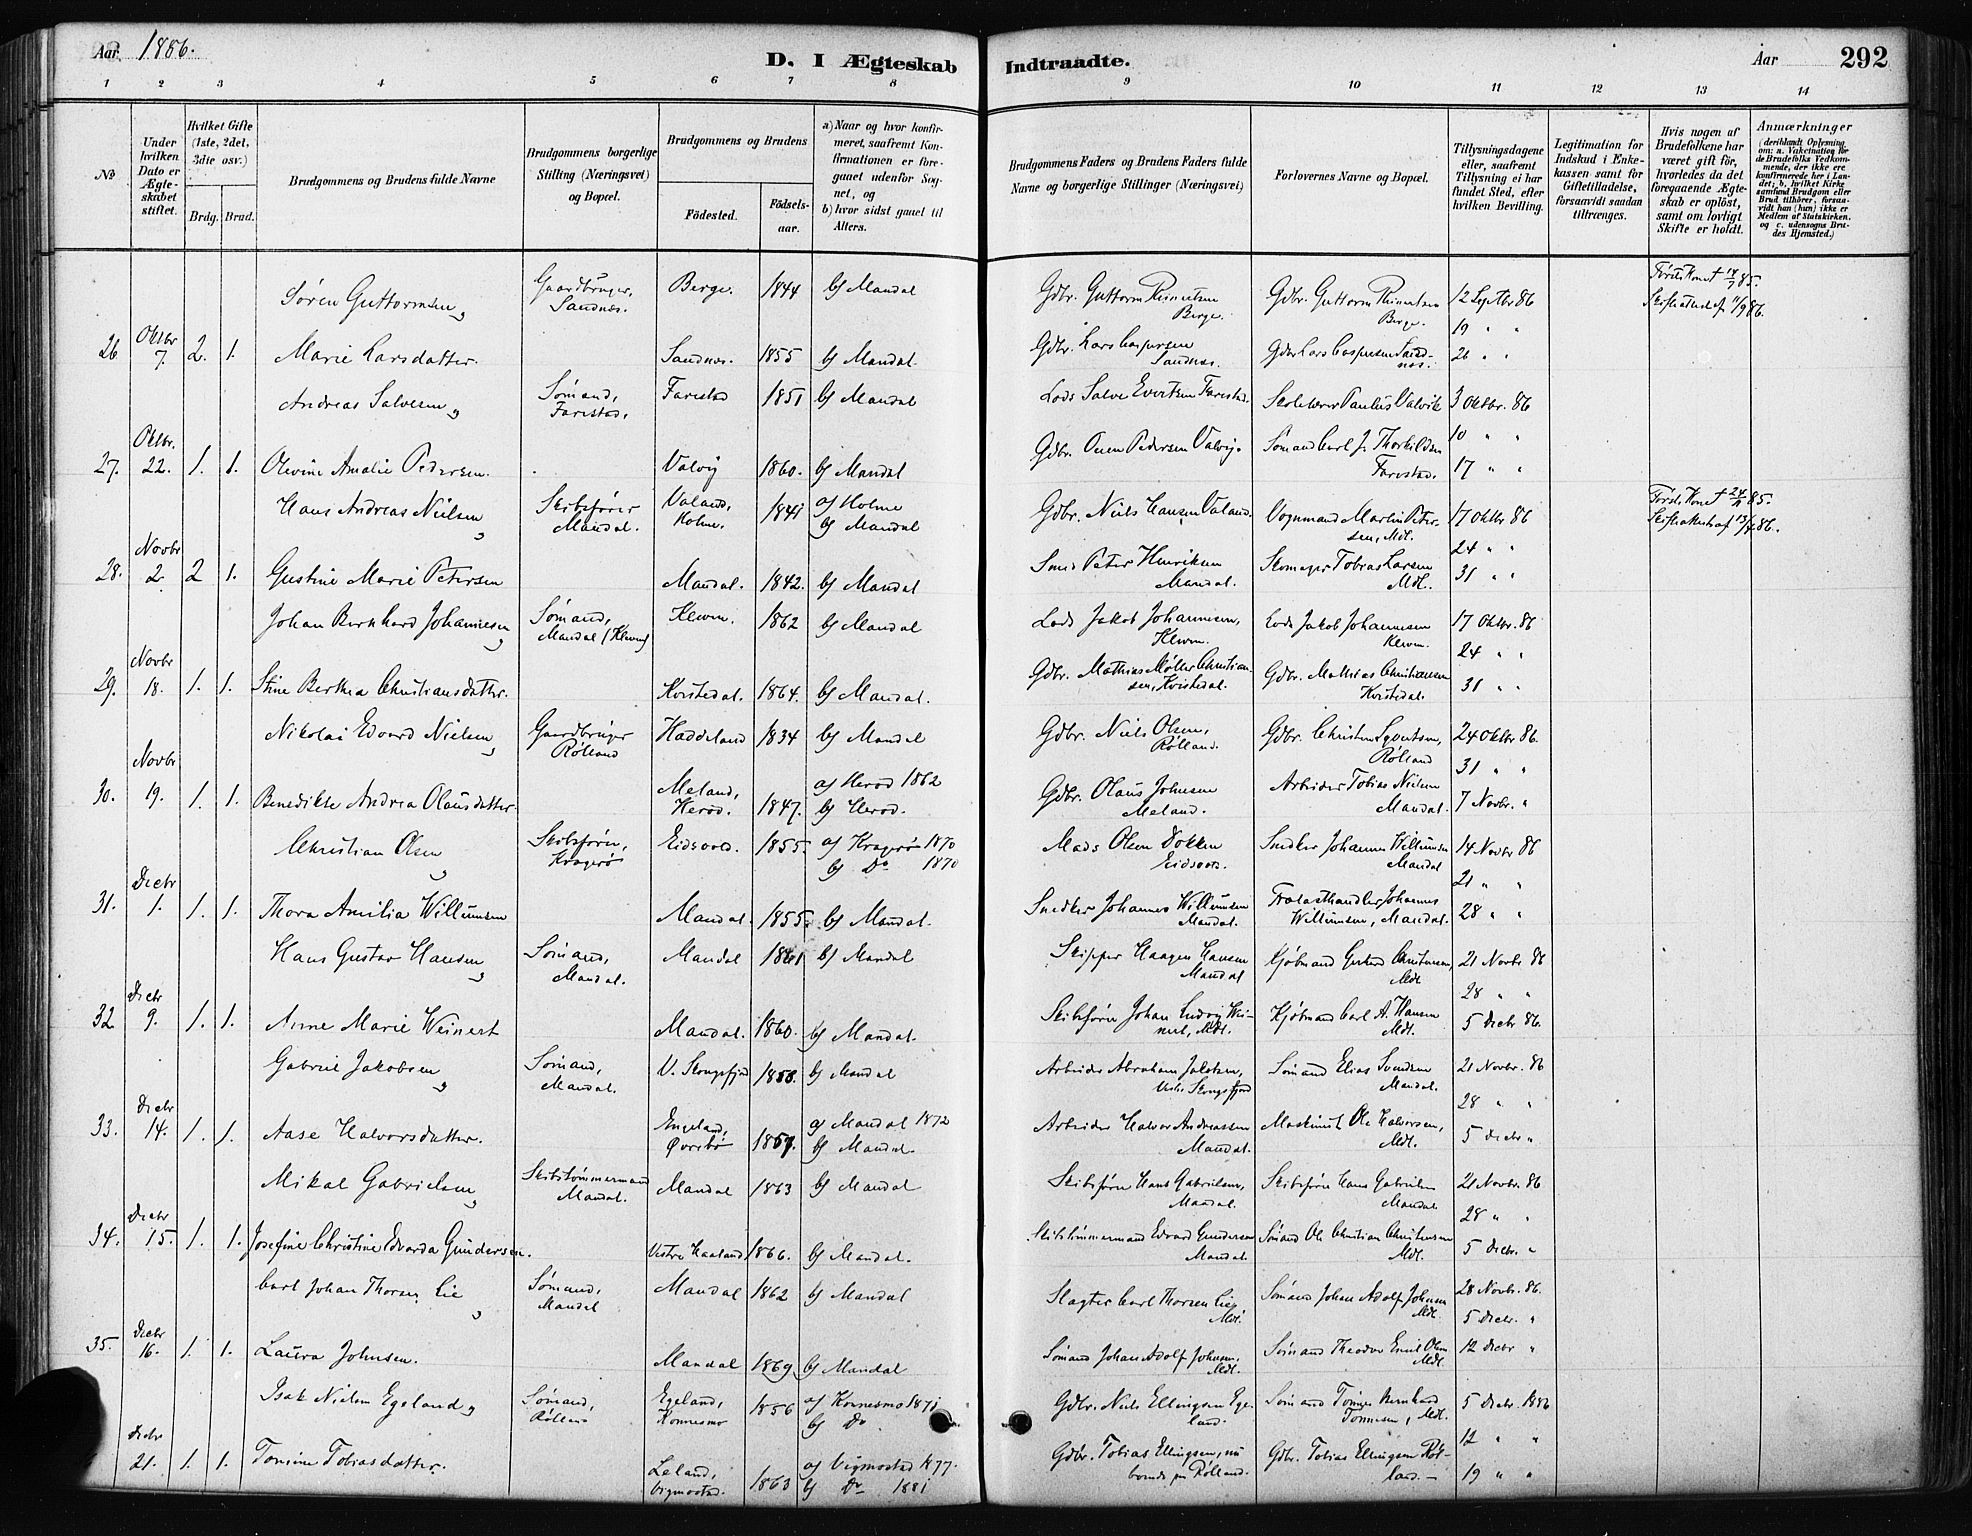 Aar 1886.
D. I Ægteskab Indtraadte.
Aar 292
1 2 3 4 5 6 7 8 9 10 11 12 13 14
No
Under hvilken Dato er Ægteskabet stiftet.
Hvilket Gifte (1ste, 2det, 3die osv.)
Brdg. Brud.
Brudgommens og Brudens fulde Navne
Brudgommens borgerlige Stilling (Næringsvei) og Bopæl.
Brudgommens og Brudens
Fødested.
Fødselsaar.
a) Naar og hvor konfirmeret, saafremt Konfirmationen er foregaaet udenfor Sognet, og
b) hvor sidst gaaet til Alters.
Brudgommens Faders og Brudens Faders fulde Navne og borgerlige Stillinger (Næringsvei)
Forlovernes Navne og Bopæl.
Tillysningsdagene eller, saafremt Tillysning ei har fundet Sted, efter hvilken Bevilling.
Legitimation for Indskud i Enkekassen samt for Giftetilladelse, forsaavidt saadan tiltrænges.
Hvis nogen af Brudefolkene har været gift før, hvorledes da det foregaaende Ægteskab er opløst, samt om lovligt Skifte er holdt.
Anmærkninger (deriblandt Oplysning om: a. Vaccination for de Brudefolks Vedkommende, der ikke ere konfirmerede her i Landet; b. hvilket Kirkesamfund Brudgom eller Brud tilhører, forsaavidt han (hun) ikke er Medlem af Statskirken, og c. udensogns Brudes Hjemsted.)
Søren Guttormsen, Gaardbruger, Sandnes. Berge. 1844 b) Mandal Gdbr. Guttorm Reinertsen Berge. Gdbr. Guttorm Reinertsen Berge. 12 Septbr 86 Første Kone † 14/7 85.
19 " " Skifteattest af 11/9 86.
26 Oktbr 7. 2. 1. Marie Larsdatter. Sandnes. 1855 b) Mandal Gdbr. Lars Caspersen Sandnes. Gdbr Lars Caspersen Sandnes. 26 " "
Andreas Salvesen, Sømand, Farestad. Farestad 1851 b) Mandal Lods Salve Evertsen Farestad. Skolelærer Paulus Valvik 3 Oktbr. 86
10 " "
27. Oktbr. 22. 1. 1. Olevine Amalie Pedersen. Valvig 1860. b) Mandal Gdbr. Ouen Pedersen Valvig. Sømand Carl J. Thorkildsen Farestad. 17 " "
Hans Andreas Nielsen, Skibsfører Mandal. Valand, Holme. 1841 a) Holme b) Mandal Gdbr. Niels Hansen Valand. Vognmand Martin Petersen, Mdl. 17 Oktbr 86 Første Kone † 24/11 85.
24 " " Skifteattest af 13/4 86.
28. Novbr 2. 2 1. Gustine Marie Petersen Mandal. 1842. b) Mandal Smed Peter Henriksen Mandal. Skomager Tobias Larsen Mdl. 31 " "
Johan Bernhard Johannesen, Sømand, Mandal (Kleven) Kleven. 1862 b) Mandal Lods Jakob Johannesen, Kleven. Lods Jakob Johannesen Kleven. 17 Oktbr. 86
24 " "
29. Novbr 18. 1. 1. Stine Berthea Christiansdatter. Kvistedal. 1864. b) Mandal. Gdbr. Mathias Møller Christiansen, Kvistedal. Gdbr. Mathias Christiansen Kvistedal. 31 " "
Nikolai Edvard Nielsen, Gaardbruger Rølland Haddeland 1834 b) Mandal Gdbr. Niels Olsen, Rølland. Gdbr. Christen Syvertsen, Rølland 24 Oktbr 86.
31 " "
30. Novbr 19. 1. 1. Benedikte Andrea Olausdatter. Meland, Herod. 1847. a) Herod 1862 b) Herod. Gdbr. Olaus Johnsen Meland. Arbeider Tobias Nielsen Mandal. 7 Novbr. "
Christian Olsen, Skibsfører, Kragerø Eidsvold. 1855. a) Kragerø 1870 b) Do 1870 Mads Olsen Dokken Eidsvold. Snedker Johannes Willumsen Mandal 14 Novbr 86
21 " "
31. Decbr 1. 1. 1. Thora Amilia Willumsen Mandal. 1855. b) Mandal. Snedker Johannes Willumsen Mandal. Trælasthandler Johannes Willumsen, Mandal. 28 " "
Hans Gustav Hansen, Sømand, Mandal. Mandal 1861 b) Mandal Skipper Haagen Hansen Mandal Kjøbmand Gerhard Christensen, Mdl. 21 Novbr. 86
28 " "
32 Decbr 9. 1. 1. Anne Marie Weinert Mandal. 1860. b) Mandal. Skibsfører Johan Ludvig Weinert, Mdl. Kjøbmand Carl A. Hansen Mdl. 5 Decbr 86.
Gabriel Jakobsen, Sømand, Mandal. V. Skongsfjord 1858. b) Mandal Arbeider Abraham Jakobsen, Vestre Skongsfjord Sømand Elias Svendsen Mandal. 21 Novbr. 86
28 " "
33. Decbr 14. 1. 1. Aase Halvorsdatter. Engeland, Øvrebø 1857. a) Mandal 1872 b) Mandal. Arbeider Halvor Andreassen Mandal. Maskinist Ole Halvorsen, Mdl. 5 Decbr "
Mikal Gabrielsen, Skibstømmermand Mandal. Mandal 1863 b) Mandal Skibsfører Hans Gabrielsen, Mandal. Skibsfører Hans Gabrielsen Mandal. 21 Novbr. 86
28 " "
34. Decbr 15. 1. 1. Josefine Christine Edvarda Gundersen. Vestre Haaland 1866. b) Mandal. Skibstømmermand Edvard Gundersen Mandal Sømand Ole Christian Christensen Mdl. 5 Decbr. "
Carl Johan Thorsen Lie, Sømand, Mandal Mandal 1862 b) Mandal Slagter Carl Thorsen Lie, Mdl. Sømand Johan Adolf Johnsen Mdl. 28 Novbr. 86.
5 Decbr. "
35. Decbr 16. 1. 1. Laura Johnsen. Mandal 1869 b) Mandal Sømand Johan Adolf Johnsen, Mdl. Sømand Theodor Emil Olsen Mdl. 12 Decbr "
Isak Nielsen Egeland, Sømand, Rølland Egeland, Konnesmo 1856 a) Konnesmo 1871 b) Do Gdbr. Niels Ellingsen Egeland. Sømand Tønnes Bernhard Tønnesen, Mdl. 5 Decbr 1886
12 " "
Decbr 21. 1. 1. Tomine Tobiasdatter. Leland, Vigmostad. 1863 a) Vigmostad 1877. b) Do 1881 Gdbr. Tobias Ellingsen, nu boende paa Rølland. Gdbr. Tobias Ellingsen Rølland. 19 " "